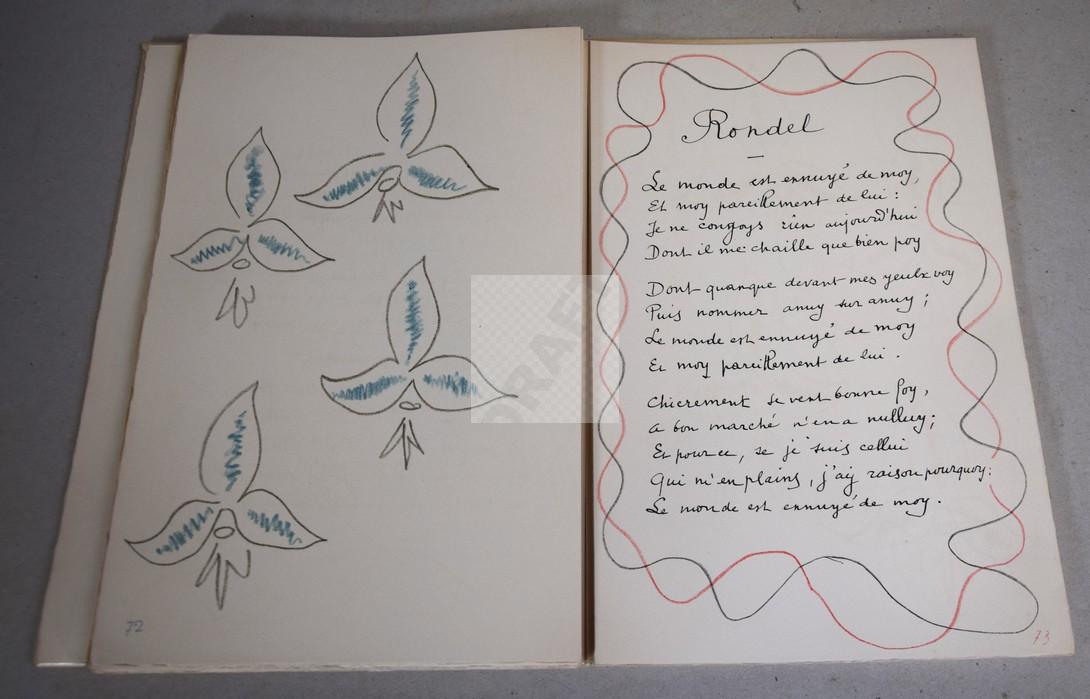 72
Rondel
Le monde est ennuyé de moy,
Et moy pareillement de lui :
Je ne congoys rien aujourd'hui
Dont il me chaille que bien poy
Dont quanque devant mes yeulx voy
Puis nommer anuy sur anuy ;
Le monde est ennuyé de moy
Et moy pareillement de lui .
Chierement se vent bonne foy,
A bon marché n'en a nulluy ;
Et pour ce, se je suis cellui
Qui m'en plains, j'ay raison pourquoy :
Le monde est ennuyé de moy .
73